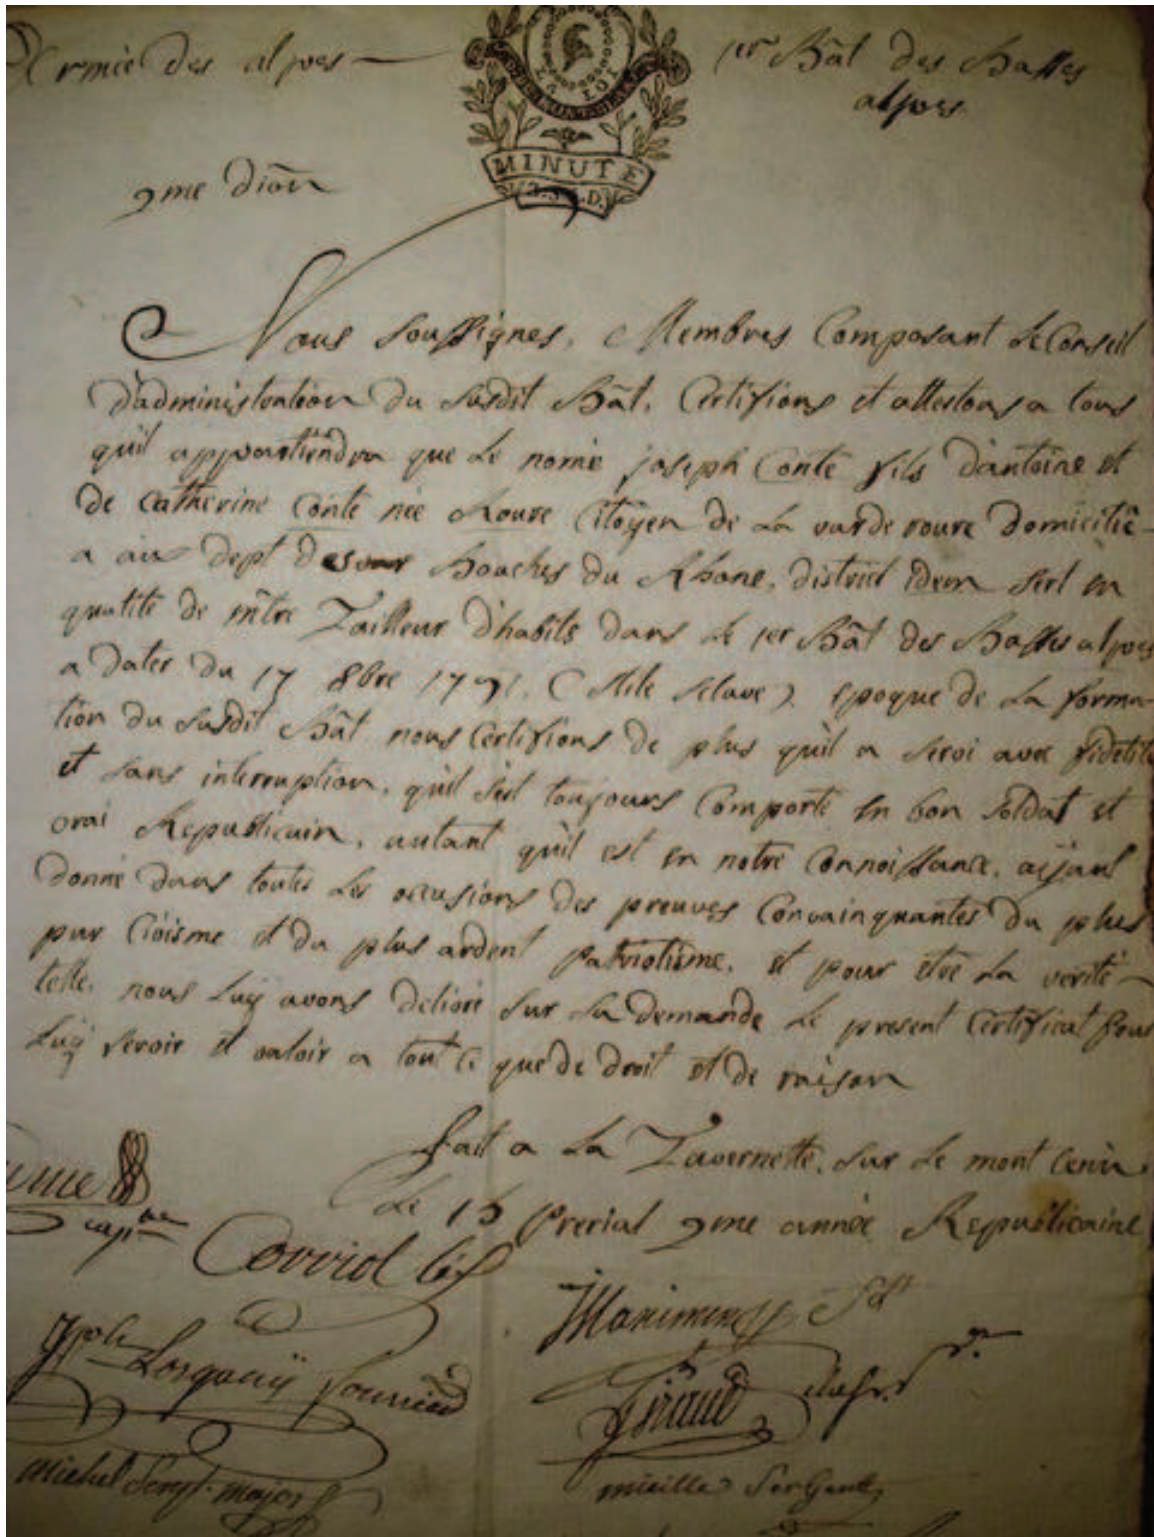 Armée des alpes
1er Bāt des Basses
alpes
LA LOI
MINUTE
2me Dion
Nous Soussignes, Membres Composant Le Conseil
D'administration Du Susdit Bāt, Certifions et attestons a tous
qu'il appartiendra que Le nomé joseph Conte fils D'antoine et
De Catherine Conte née Roure Citoyen De La Domicilié
a au Dept Des Bouches Du Rhone, District idem Sert en
qualité De mître Tailleur D'habits Dans Le 1er Bāt Des Basses alpes
a Dater Du 17 8bre 1791. ( Stile Sclave ) Epoque De La forma-
tion Du Susdit Bāt nous Certifions De plus qu'il a Servi avec fidelité
et sans interruption, qu'il S'est toujours Comporté En bon Soldat et
vrai Republicain, autant qu'il est En notre Connoissance, aÿant
Donné Dans toutes Les occasions Des preuves Convainquantes Du plus
pur Civisme et Du plus ardent patriotisme, et pour être La verité
telle, nous Luÿ avons Delivré Sur Sa Demande Le present Certificat pour
Luÿ Servir et valoir a tout Ce que De Droit et De raison
fait a La Tavernette, Sur Le mont Cenis
Le 15 Prerial 2me année Republicaine
capne
Corriol
Maximen
Jph
fourrier
Giraud
michel Sergt. major
mieille Sergent